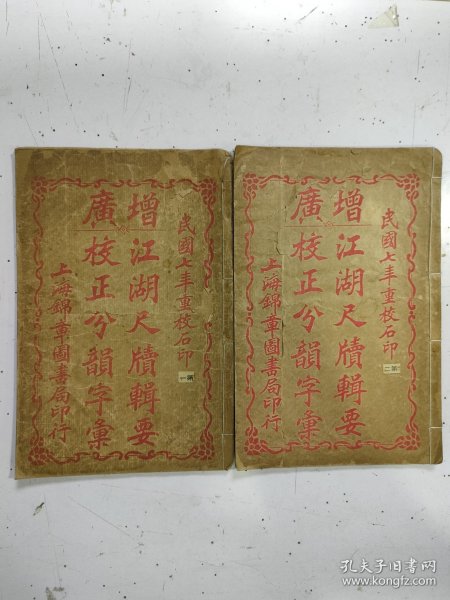 民國七年重校石印
第一
增廣
江湖尺牘輯要
校正分韻字彙
上海錦章圖書局印行
民國七年重校石印
第二
增廣
江湖尺牘輯要
校正分韻字彙
上海錦章圖書局印行
孔夫子旧书网
www.kongfz.com